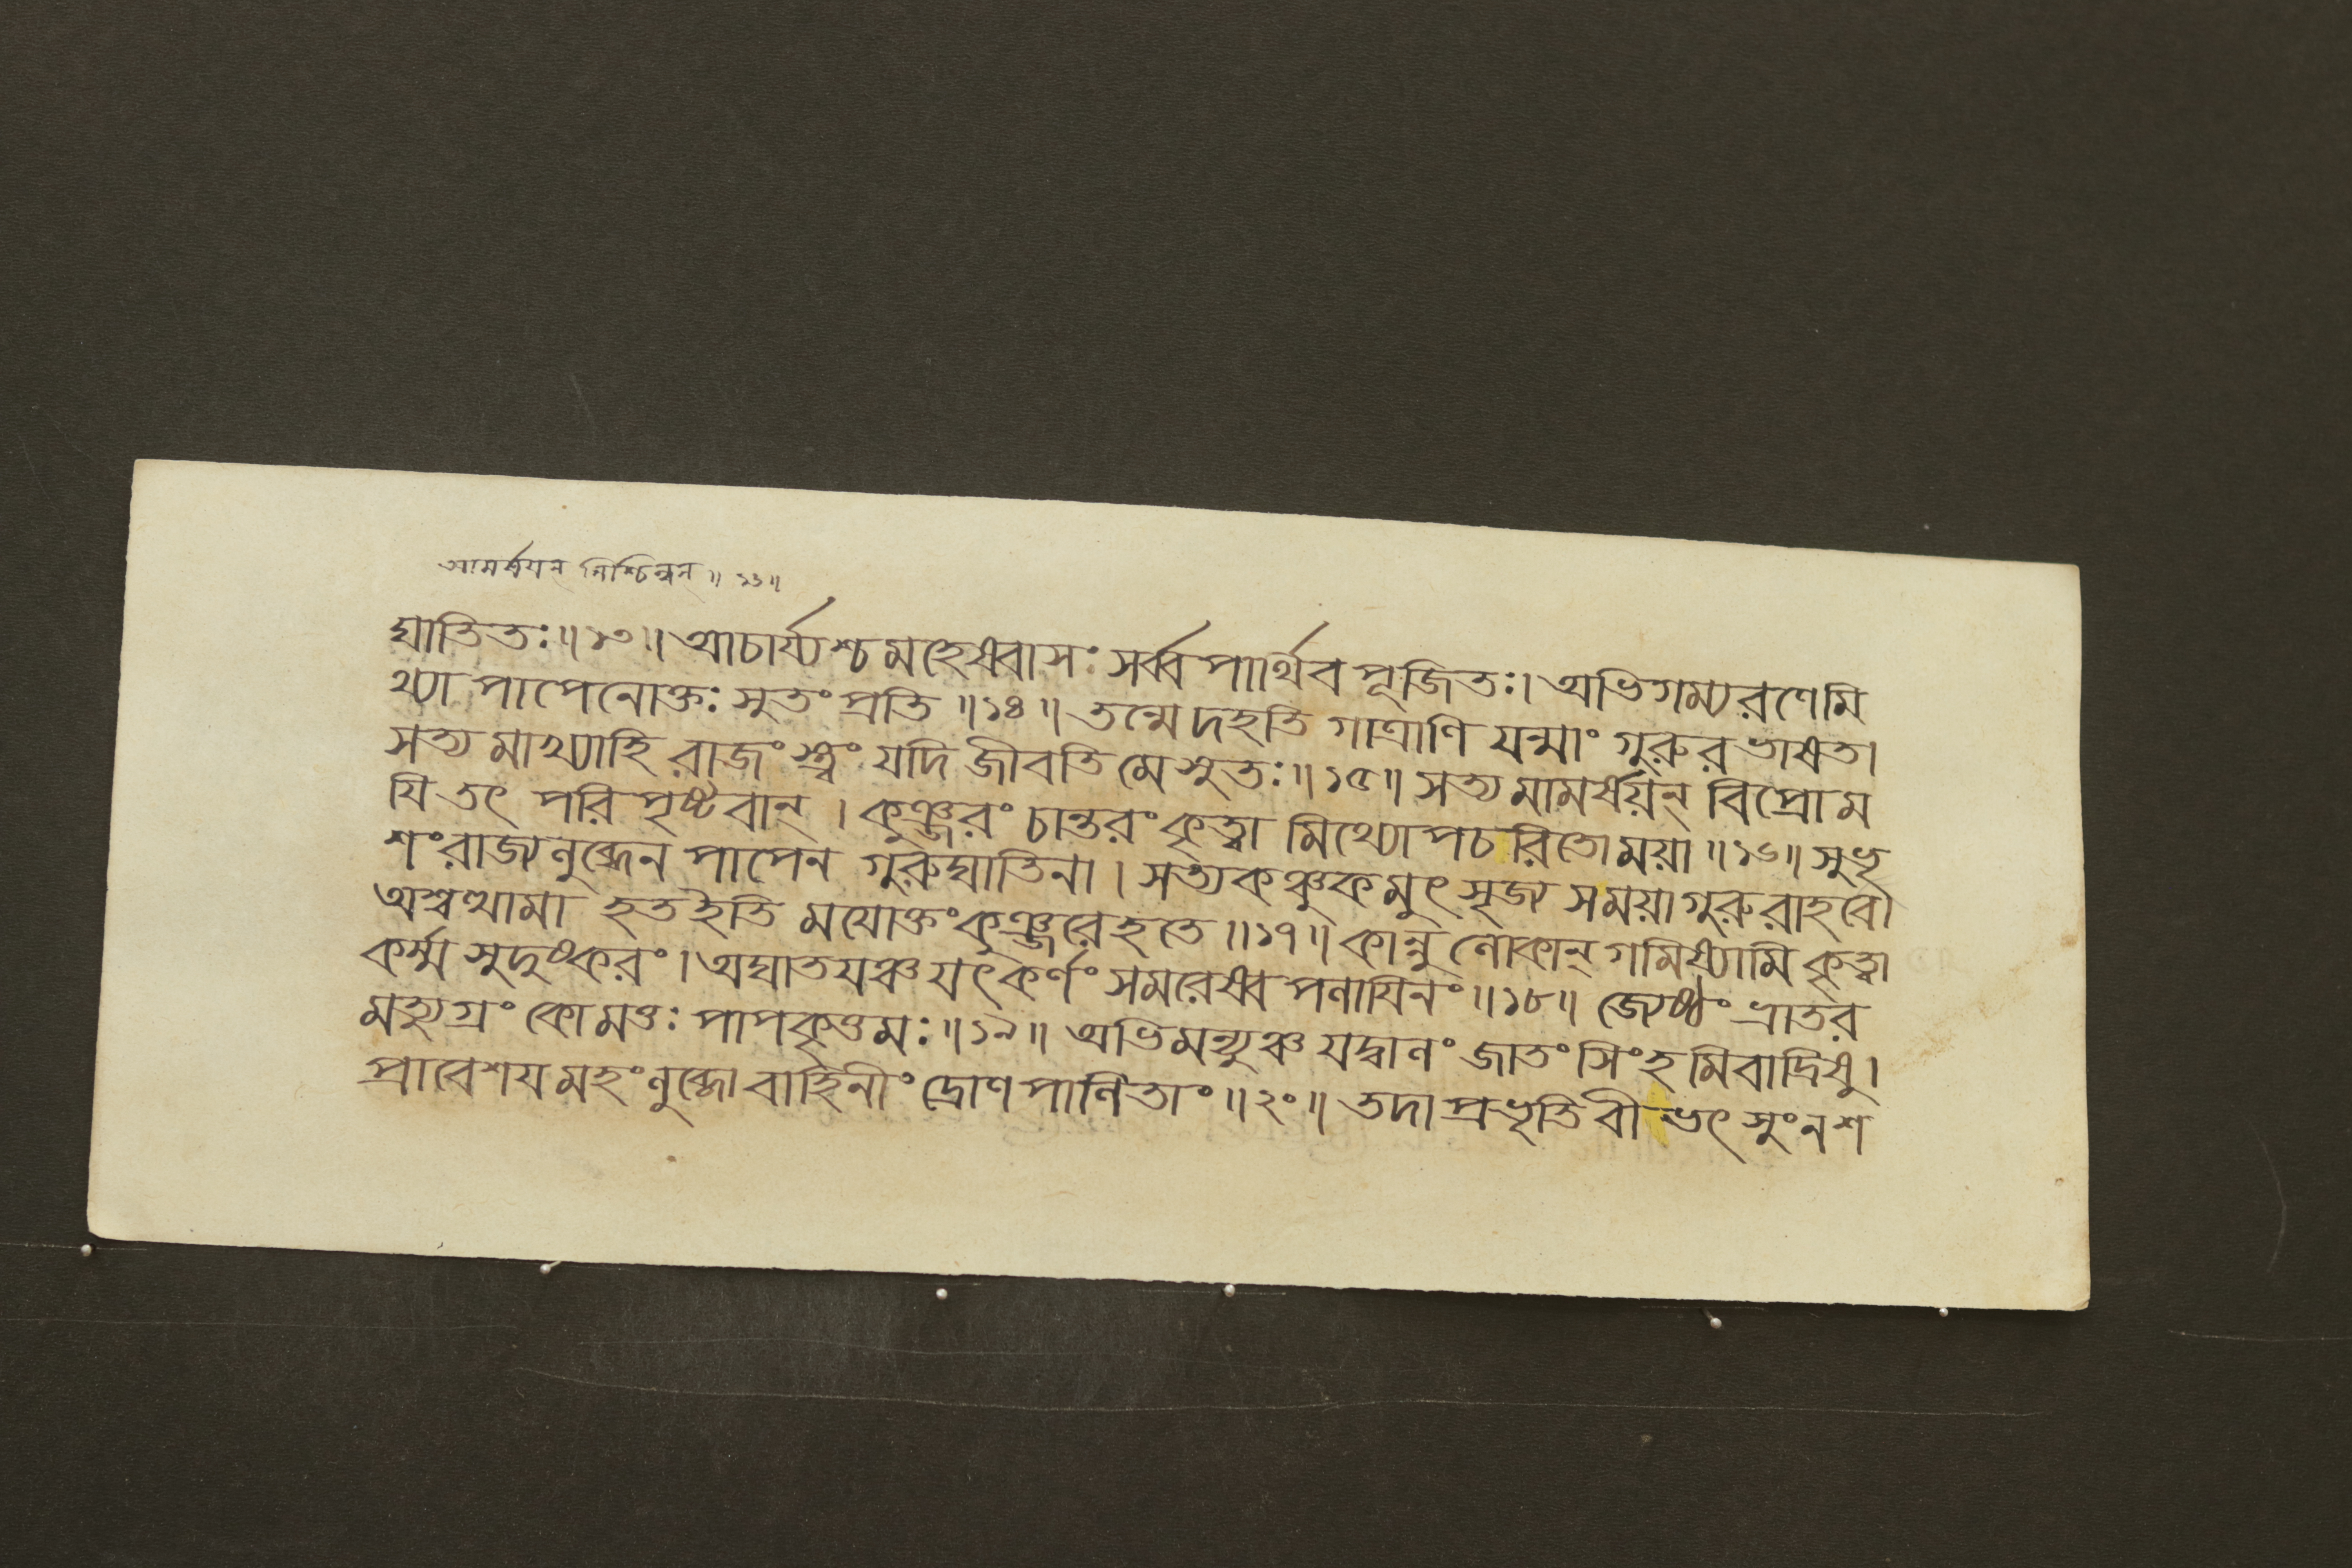 আমর্ষযন্ নিশ্চিন্বন্ ॥ ১৬ ॥
ঘাতিতঃ ॥ ১৩ ॥ আচার্য্যশ্চ মহেষ্বাসঃ সর্ব্ব পার্থিব পূজিতঃ । অভিগম্য রণে মি
থ্যা পাপেনোক্তঃ সুতং প্রতি ॥ ১৪ ॥ তন্মে দহতি গাত্রাণি যন্মাং গুরুর ভাষত ।
সত্য মাখ্যাহি রাজং স্ত্বং যদি জীবতি মে সুতঃ ॥ ১৫ ॥ সত্য মামর্ষয়ন্ বিপ্রো ম
যি তৎ পরি পৃষ্টবান্ । কুঞ্জরং চান্তরং কৃত্বা মিথ্যোপচরিতো ময়া ॥ ১৬ ॥ সুভৃ
শং রাজ্যলুব্ধেন পাপেন গুরুঘাতিনা । সত্যকঞ্চুকমুৎসৃজ্য স ময়া গুরু রাহবে ।
অশ্বত্থামা হত ইতি মযোক্তং কুঞ্জরে হতে ॥ ১৭ ॥ কান্নু লোকান্ গমিষ্যামি কৃত্বা
কর্ম্ম সুদুষ্করং । অঘাতযঞ্চ যৎ কর্ণং সমরেষ্ব পলাযিনং ॥ ১৮ ॥ জ্যেষ্ঠং ভ্রাতর
মত্যুগ্রং কো মত্তঃ পাপকৃত্তমঃ ॥ ১৯ ॥ অভিমন্যুঞ্চ যদ্বালং জাতং সিংহ মিবাদ্রিষু ।
প্রাবেশয মহং লুব্ধো বাহিনীং দ্রোণ পালিতাং ॥ ২০ ॥ তদা প্রভৃতি বীভৎসুং ন শ